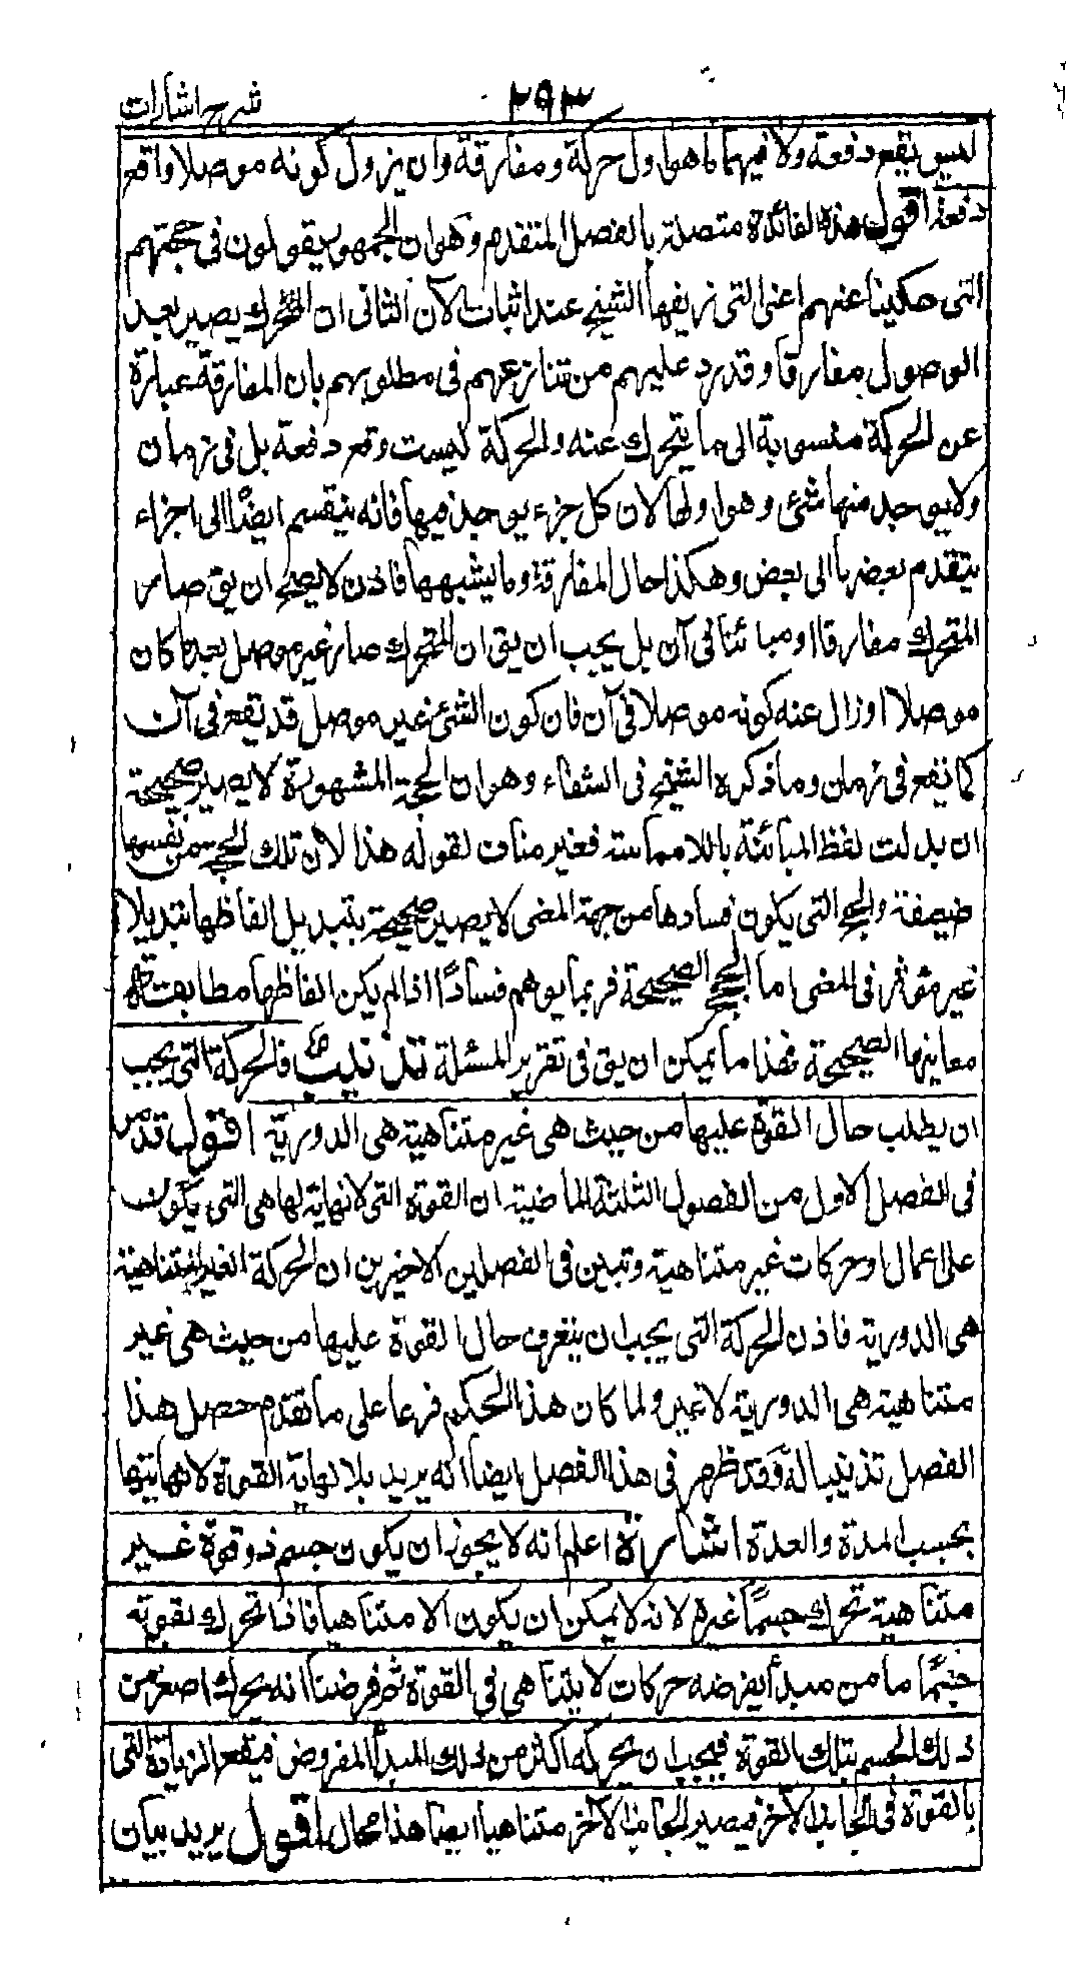 شرح اشارات
٢٩٣
ليس يقع دفعة ولا فيهما ما هو اول حركة ومفارقة وان يزول كونه موصلا واقع
دفعة اقول هذه الفائدة متصلة بالفصل المتقدم وهو ان الجمهور يقولون فى حجتهم
التى حكيناها عنهم اعنى التى زيفها الشيخ عند اثبات الآن الثانى ان المتحرك يصير بعد
الوصول مفارقا وقد يرد عليهم من تنازعهم فى مطلوبهم بان المفارقة عبارة
عن الحركة منسوبة الى ما يتحرك عنه والحركة ليست وقع دفعة بل فى زمان
ولا يوجد منها شئ وهو اولها لان كل جزء يوجد فيها فانه ينقسم ايضًا الى اجزاء
يتقدم بعضها الى بعض وهكذا حال المفارقة وما يشبهها فاذن لا يصح ان يق صار
المتحرك مفارقا او مبائنا فى آن بل يجب ان يق ان المتحرك صار غير موصل بعد ما كان
موصلا او زال عنه كونه موصلا فى آن فان كون الشئ غير موصل قد تقع فى آن
كما تقع فى زمان وما ذكره الشيخ فى الشفاء وهو ان الحجة المشهورة لا يصير صحيحة
ان بدلت لفظ المبائنة باللامماسة فغير مناف لقوله هذا لان تلك الحجج من نفسها
ضيعفة والحجج التى يكون فسادها من جهة المعنى لا يصير صحيحة بتبديل الفاظها تبديلا
غير مؤثر فى المعنى اما الحجج الصحيحة فربما يوهم فسادًا اذا لم يكن الفاظها مطابقة
معاينها الصحيحة فهذا ما يمكن ان يق فى تقرير المسئلة تذنيب فالحركة التى يجب
ان يطلب حال القوة عليها من حيث هى غير متناهية هى الدورية اقول قد مر
فى الفصل الاول من الفصول الثلثة الماضية ان القوة التى لا نهاية لها هى التى يكون
على اعمال او حركات غير متناهية وتبين فى الفصلين الاخيرين ان الحركة الغير المتناهية
هى الدورية فاذن الحركة التى يجب ان يتعرف حال القوة عليها من حيث هى غير
متناهية هى الدورية لا غير ولما كان هذا الحكم فرعا على ما تقدم حصل هذا
الفصل تذنيبا له وقد ظهر فى هذا الفصل ايضا انه يريد بلا نهاية القوة لا نهايتها
بحسب المدة والعدة اشارة اعلم انه لا يجوز ان يكون جسم ذو قوة غير
متناهية تحرك جسمًا غيره لانه لا يمكن ان يكون الا متناهيا فاذا تحرك بقوته
جسمًا ما من مبدأ يفرضه حركات لا يتناهى فى القوة ثم فرضنا انه يحرك اصغر من
ذلك الجسم بتلك القوة فيجب ان يحركه اكثر من ذلك المبدأ المفروض فيقع الزيادة التى
بالقوة فى الجانب الآخر فيصير الجانب الآخر متناهيا ايضا هذا محال اقول يريد بيان